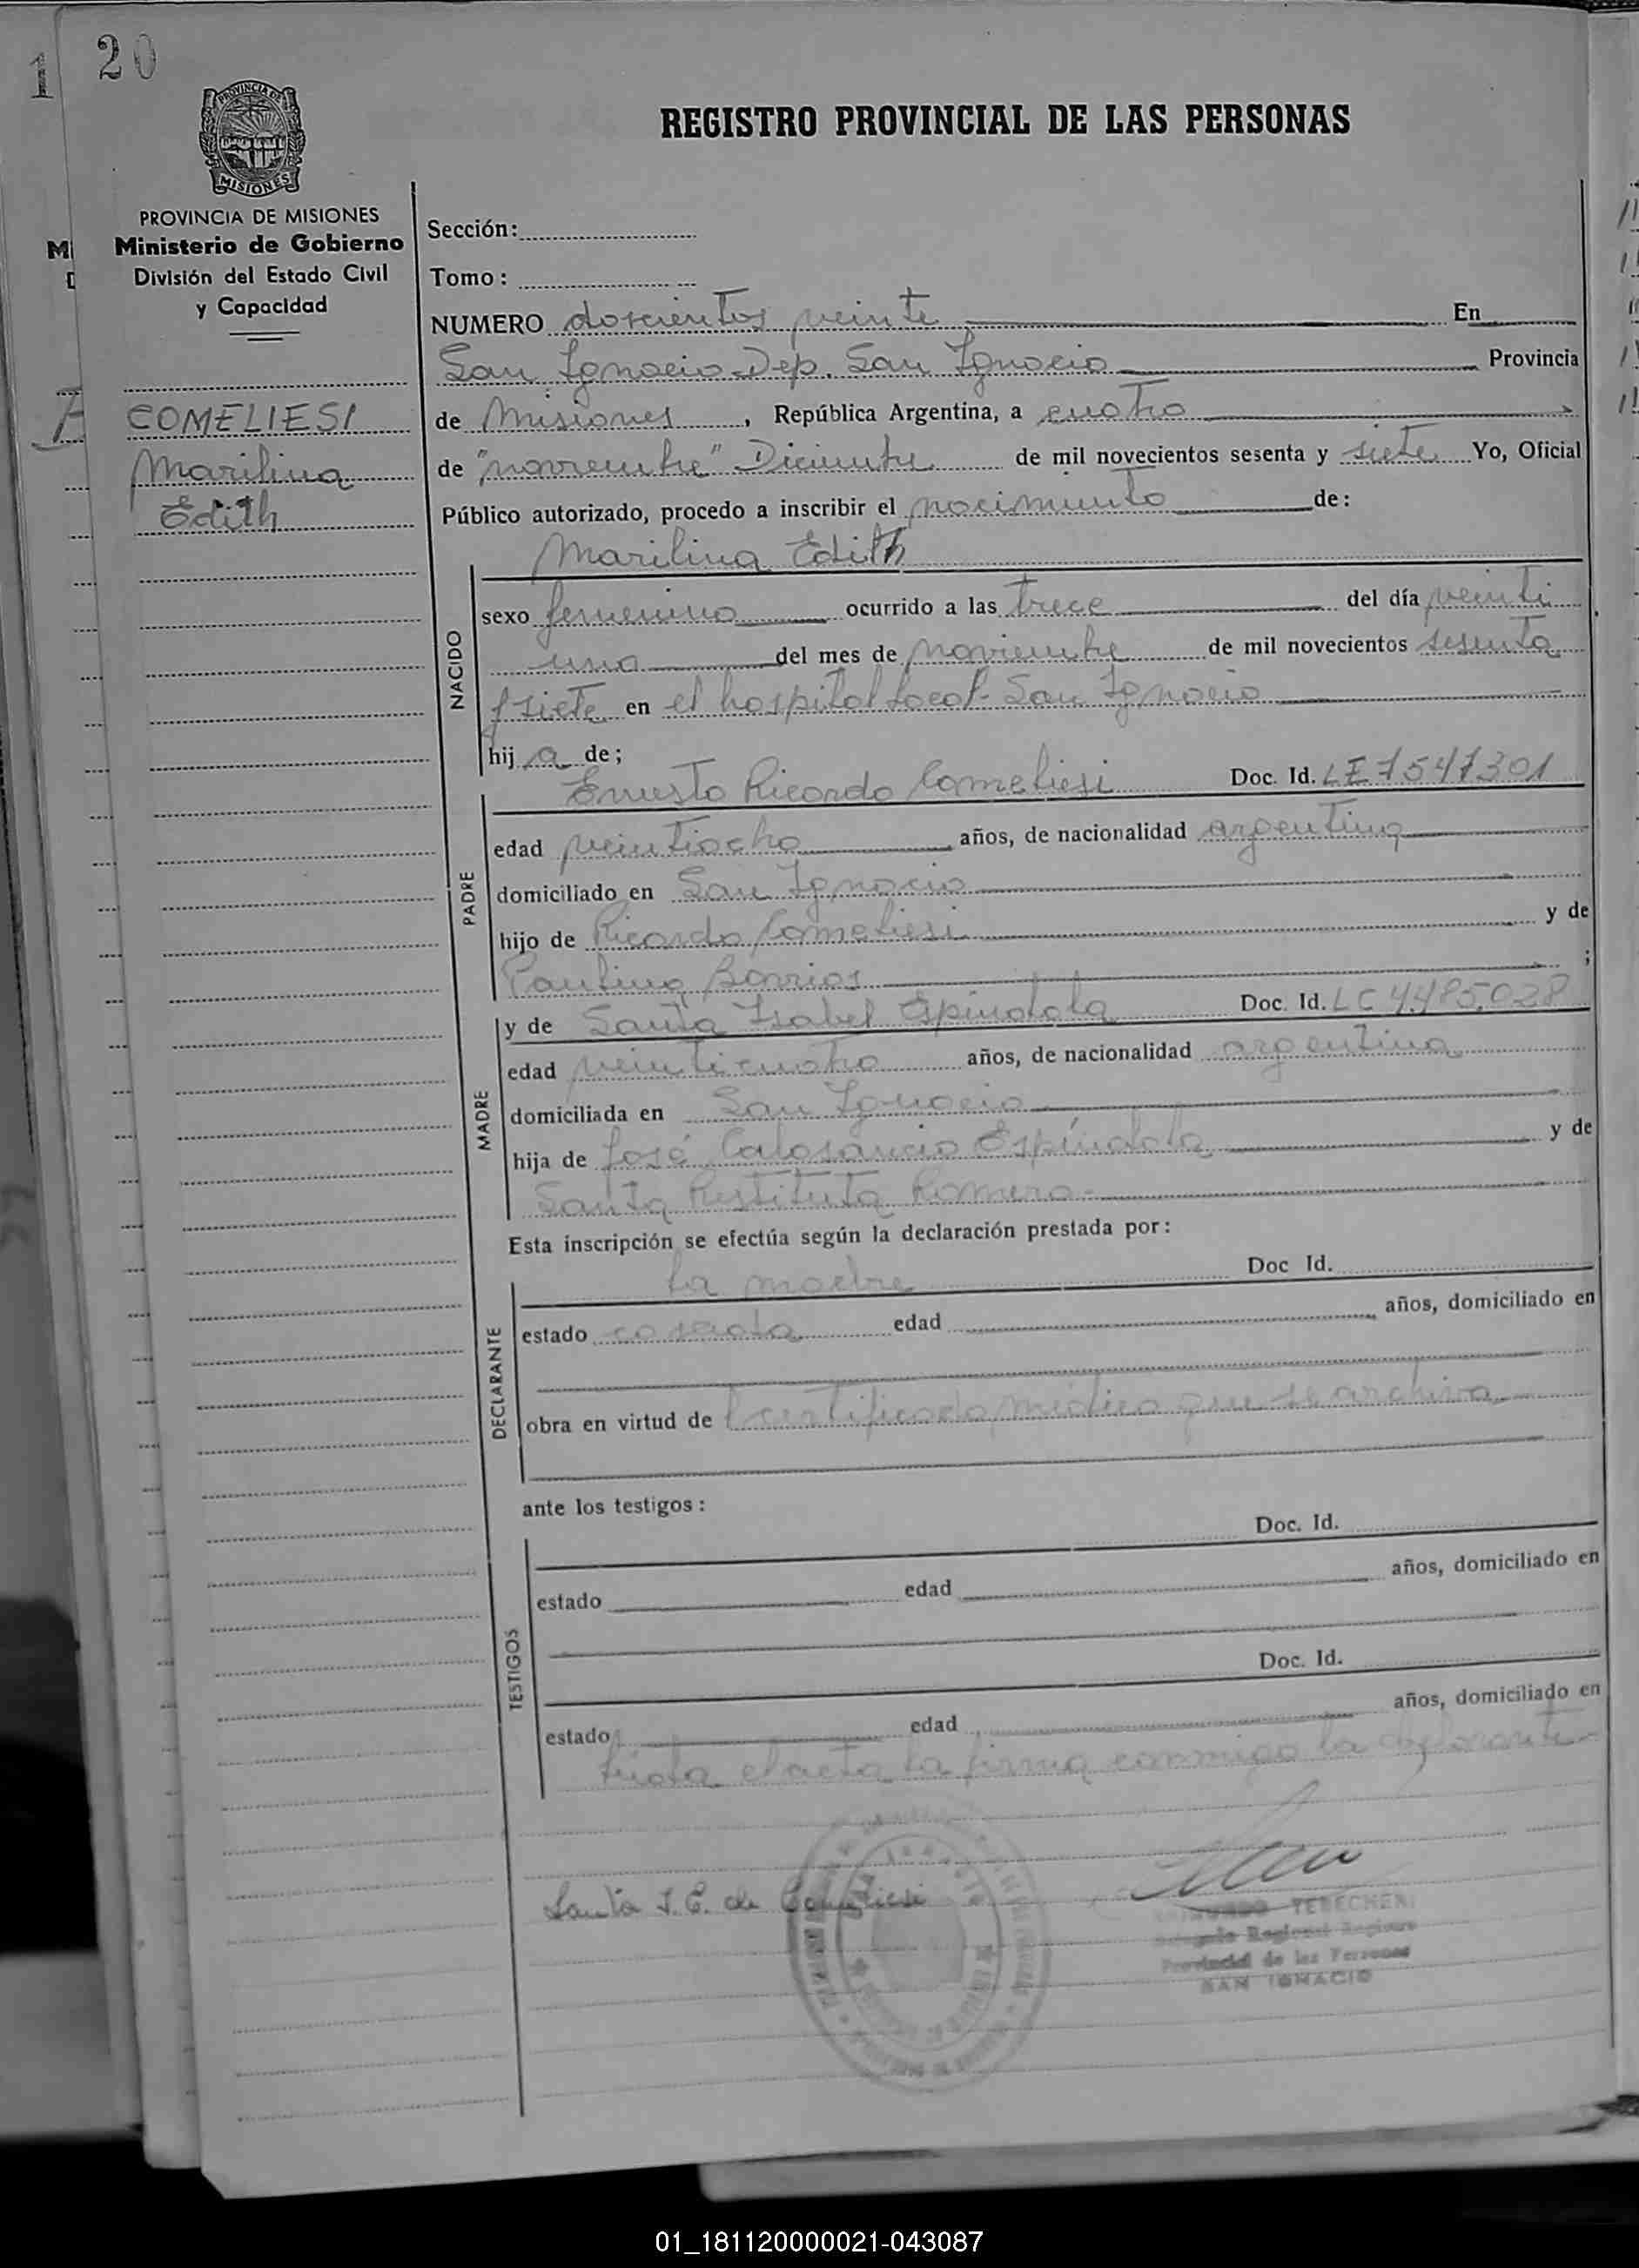 1
20
PROVINCIA DE
MISIONES
REGISTRO PROVINCIAL DE LAS PERSONAS
PROVINCIA DE MISIONES
Ministerio de Gobierno
División del Estado Civil
y Capacidad
COMELIESI
Marilina
Edith
Sección:
Tomo:
NUMERO doscientos veinte En
San Ignacio Dep. San Ignacio Provincia
de Misiones, República Argentina, a cuatro
de "noviembre" Diciembre de mil novecientos sesenta y siete Yo, Oficial
Público autorizado, procedo a inscribir el nacimiento de:
Marilina Edith
NACIDO
sexo femenino ocurrido a las trece del día veinti
uno del mes de noviembre de mil novecientos sesenta
y siete en el hospital local - San Ignacio
hij a de;
PADRE
Ernesto Ricardo Comeliesi Doc. Id. LE 7547301
edad veintiocho años, de nacionalidad argentina
domiciliado en San Ignacio
hijo de Ricardo Comeliesi y de
Paulina Barrios ;
MADRE
y de Santa Isabel Espíndola Doc. Id. LC 4.485.028
edad veinticuatro años, de nacionalidad argentina
domiciliada en San Ignacio
hija de José Calosancio Espíndola y de
Santa Restituta Romero.-
Esta inscripción se efectúa según la declaración prestada por:
DECLARANTE
La madre Doc Id.
estado casada edad años, domiciliado en
obra en virtud de certificado médico que se archiva
ante los testigos:
TESTIGOS
Doc. Id.
estado edad años, domiciliado en
Doc. Id.
estado edad años, domiciliado en
Leída el acta la firma conmigo la declarante.-
Santa I. E. de Comeliesi
TERECHEN
Regional
Provincial de las Personas
SAN IGNACIO
01_181120000021-043087